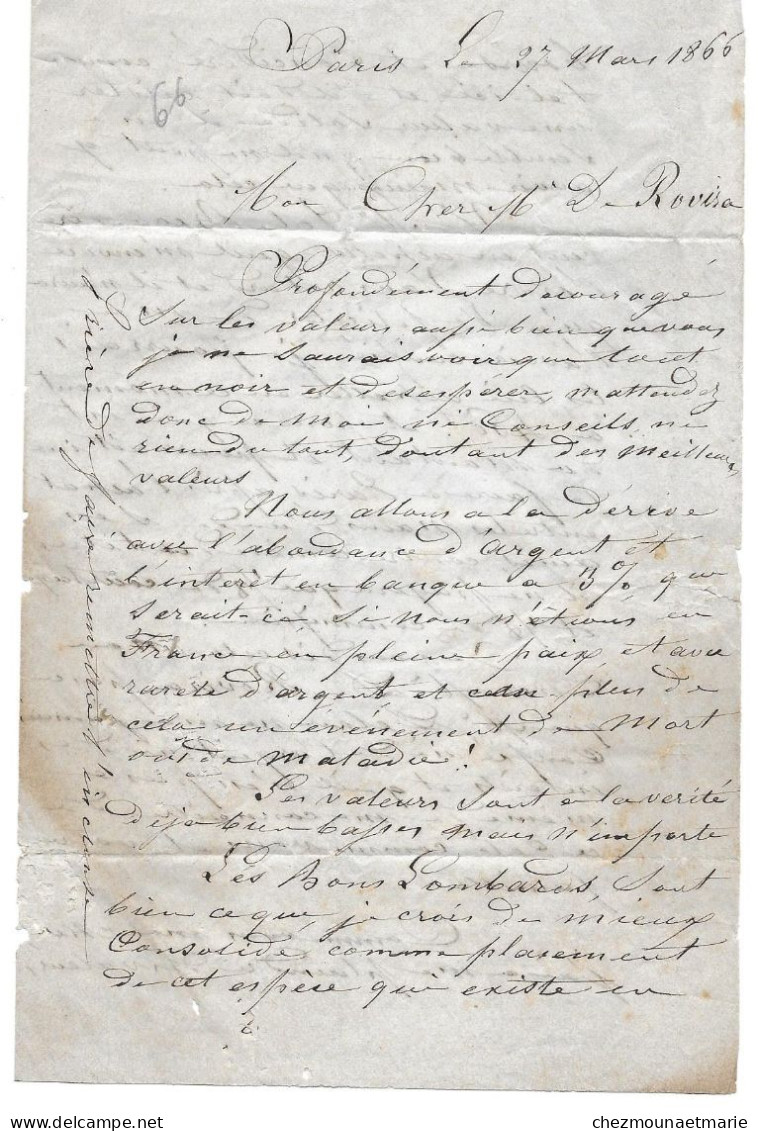 Paris Le 27 Mars 1866
66
Mon Cher Mr De Rovira
Profondément decouragé
Sur les valeurs aussi bien que vous
je ne Saurais voir que tout
en noir et desesperer, m'attendez
donc de Moi ni Conseils, ni
rien du tout, d'autant des Meilleures
valeurs
Nous allons a la dérive
avec l'abondance d'argent et
l'interèt en banque a 3% que
Serait-ce Si nous n'étions en
France en pleine paix, et avec
rareté d'argent, et plus de
cela un evénement de Mort
ou de Maladie!
Les valeurs Sont a la verité
deja bien basses mais n'importe
Les Bons Lombards, Sont
bien ce que je crois de mieux
Consolidé, comme placement
de cet espèce qui existe en
Prière de faire remettre l'incluse
chezmounaetmarie